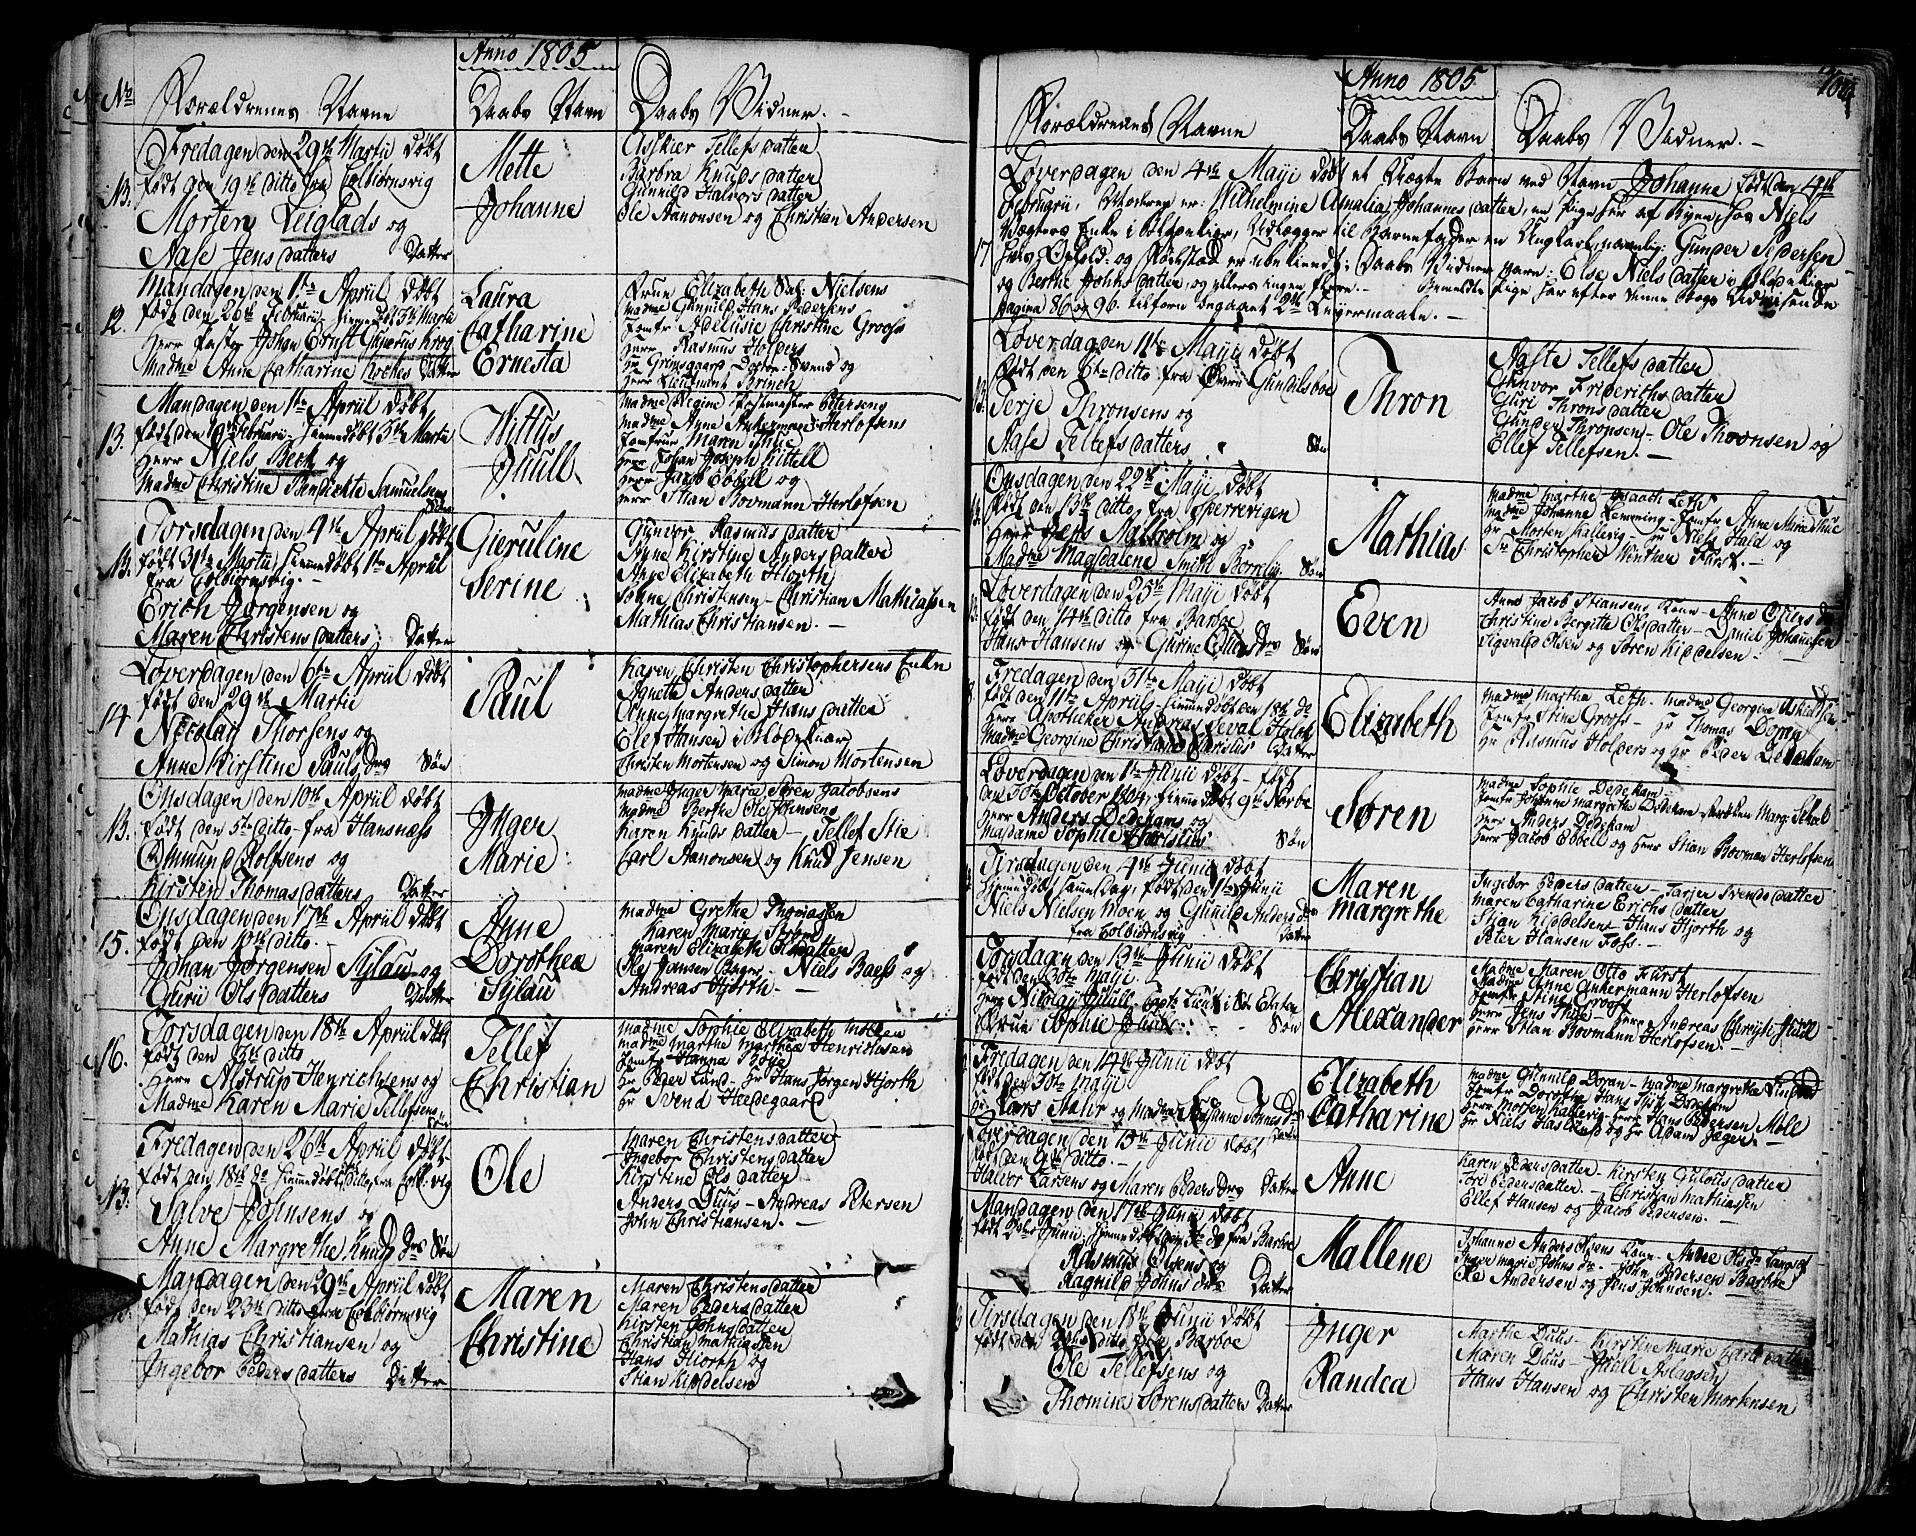 Anno 1805
No
Forældrenes Navne
Daabs Navn
Daabs Vidner.
Fredagen den 29de Martii døbt
født den 19de ditto fra Colbiørnsvig
Morten Leiglads og
Aase Jens datters Datter
Mette
Johanne
Asskier Tellefs datter
Barbra Knuds datter
Gunnild Halvors datter
Ole Aanonsen og Christian Andersen
Mandagen den 1te April døbt
12. født den 26de Februarii hiemmedøbt 3de Martii
Herr Pastor Johan Ernst Gunerus Krog
Madme Anne Catharine Kockes Datter
Laura
Catharine
Ernesta
Frue Elizabeth Sal: Nielsens
Madme Gunnild Hans Pedersens
Jomfr Adelusie Christine Grooss
Herr Rasmus Holpers
Hr Grimsgaard Svend og
Herr Lieutnant Brinch
Mandagen den 1te April døbt
13. født den Februarii hiemmedøbt 3de Martii
Herr Niels Beck og
Madme Christine Benedichte Samuelsens
Søn
Wittus
Juull
Madme Regine Postmester Petersens
Madme Anne Ankerman Herlofsens
Jomfrue Maren Thue
Herr Johan Joseph Kittell
Herr Jacob Ebbell og
Herr Stian Bovmann Herlofsen
Torsdagen den 4de April døbt
født 31te Martii, hiemmedøbt 1te April
fra Colbiørnsvig.
Erich Jørgensen og
Maren Christens datters Datter
Gieruline
Serine
Gunvor Rasmus datter
Anne Kirstine Anders datter
Anne Elizabeth Hiorth
Søren Christensen - Christian Mathiassen
Mathias Christiansen.
Løverdagen den 6te April døbt
født den 29de Martii
14 Nicolay Thorsens og
Anne Kirstine Pauls drs Søn
Paul
Karen Christen Christophersens Enke
Agnette Anders datter
Anne Margrethe Hans datter
Elef Hansen i Blødekiær
Christen Mortensen og Simon Mortensen
Onsdagen den 10de April døbt
født den 5te ditto fra Hansnæss
Omund Rolfsens og
Kirsten Thomas datters Datter
Inger
Marie
Madme Inger Marie Søren Jacobsens
Madme Berthe Ole Johnsens
Karen Knuds datter - Tellef Stie
Carl Aanonsen og Knud Jensen
Onsdagen den 17de April døbt
15. født den 10de ditto.
Johan Jørgensen Sylau og
Gurii Ols datters Datter
Anne
Dorothea
Sylau
Madme Grethe Thomassen
Karen Marie Strøm
Maren Elizabeth Ols datter
Ole Jansen Bager - Niels Baess og
Andreas Hjorth.
Torsdagen den 18de April døbt
16. født den ditto
Herr Alstrup Henrichsens og
Madme Karen Marie Tellefsens
Søn
Tellef
Christian
Madme Sophie Elizabeth Moesen
Madme Marthe Marthea Henrichsen
Jomfr Hanna Boye
Hr Peder Lund - Hr Hans Jørgen Hjorth
Hr Svend Hædegaard
Fredagen den 26de April døbt
født den 18de do hiemmedøbt fra Colb.vig
Salve Johnsens og
Anne Margrethe Knuds drs Søn
Ole
Maren Christens datter
Ingebor Christens datter
Kirstine Ols datter
Anders Duus - Andreas Petersen
John Christiansen.
Mandagen den 29de April døbt
født den 23de ditto fra Colbiørnsvig
Mathias Christiansen og
Ingebor Peders datters Datter
Maren
Christine
Maren Christens datter
Maren Peders datter
Kirsten Johns datter
Christian Mathiassen
Hans Hiorth og
Stian Kiddelsen
Anno 1805
Forældrenes Navne
Daabs Navn
Daabs Vidner.
Løverdagen den 4de Maji døbt et Uægte Barn ved Navn Johanne født den 14de
Februarii, Moderen er: Wilhelmine Amalia Johannes datter, en Pige her af Byen, hos Niels
Bøgters Enke i Udlægger til Barnefader en Ungkarl, navnlig: Gunder Pedersen
17 hvis Ophold- og Fødested er ubekiendt; Daabs Vidner vare: Else Niels datter i
og Berthe Johns datter, og ellers ingen flere. Bemeldte Pige har efter denne Bogs Udvisende
pagina 86 og 96 tilforn begaaet 2de Leiermaale.
Løverdagen den 11te Maji døbt
født den 6te ditto fra Øvre Gundilsboe
Terje Thronsens og
Aase Tellefs datters Søn
Thron
Aaste Tellefs datter
Gunvor Friderichs datter
Guri Throns datter
Gunder Thronsen - Ole Thronsen og
Ellef Tellefsen.
Onsdagen den 22de Maji døbt
født den 13de ditto fra Sperrevigen
Herr Jens Mallcolm og
Madme Magdalene Smith Borrelig Søn
Mathias
Madme Marthe Leth
Madme Johanne Flemming - Jomfr Anne Marie Thue
Hr Morten Kallevig - Hr Niels Hald og
Sr Christopher Winther Fürst.
Løverdagen den 25de Maji døbt
født den 14de ditto fra Barboe
Hans Hansens og Gurine Ottens drs Søn
Even
Anne Jacob Stiansens Kone - Anne Osuls dr
Christine Bergitte Ols datter - Daniel Johannsen
Sigvald Olsen og Søren Kiddelsen.
Fredagen den 31te Maji døbt
født den 11te April hiemmedøbt den
Herr Apotheker Andreas Seval Haldt
Madme Georgine Christiane Clarislius Datter
Elizabeth
Madme Martha Leth - Madme Georgine
Jomfr Stine Grooss - Hr Thomas Doran
Hr Rasmus Holpers og Hr Peder Dedekam
Løverdagen den 1te Junii døbt - født
den 30de October 1804, hiemmedøbt 9de Novbr
Herr Anders Dedekams og
Madame Sophie Chorislius Søn
Søren
Madme Sophie Dedekam -
Jomfr Johanne Margrethe Dedekam
Herr Anders Dedekam
Herr Jacob Ebbell og Herr Stian Bovman Herlofsen
Tirsdagen den 4de Junii døbt
hiemmedøbt samme Dag, født den 1te Junii
Niels Nielsen Moen og Gunild Anders dr
fra Colbiørnsvig Datter
Maren
Margrethe
Ingebor Peders datter - Tarjer Svends datter
Maren Catharine Erichs datter
Stian Kiddelsen - Hans Hjorth og
Peter Hansen Foss.
Torsdagen den 13de Junii døbt
født den 30te Maji.
Herr Nicolay Juull -
Frue Sophie Søn
Christian
Alexander
Madme Maren Otto Fürst
Madme Anne Ankermann Herlofsen
Jomfr Stine Grooss
Herr Jens Thue - Herr Andreas Christi: Juull
Herr Stian Bovmann Herlofsen.
Fredagen den 14de Junii døbt
født den 30te Maji
Hr Lars Stahr og Madme Johanne Tønnes dr
Datter
Elizabeth
Catharine
Madme Gunnild Doran - Madme Margrethe
Jomfr Dorothe Hans Dedekam
Herr Morten Kallevig - Herr Hans Pedersen Møle
Hr Niels Haslund og Hr Adam Jæger.
Løverdagen den 15de Junii døbt
født den 9de ditto.
Halvor Larsens og Maren Peders drs Datter
Anne
Karen Peders datter - Kirsten Gulovs datter
Tore Peders datter. - Christian Mathiassen
Ellef Hansen og Jacob Pedersen.
Mandagen den 17de Junii døbt
født Junii, hiemmedøbt den fra Barboe
Rasmus Olsens og
Ragnild Johns drs Datter
Mallene
Johanne Anders Olsens Kone - Andrea Ols dr Langsæ
Inger Marie Johns dr - John Pedersen Barboe
Ole Andersen og Jens Johnsen.
Tirsdagen den 18de Junii døbt
født den ditto fra Barboe
Ole Tellefsens og
Thomine Sørens datters Datter
Inger
Randea
Marthe Duus - Kirstine Marie Carls datter
Maren Duus - Aslagsen
Hans Hansen og Christen Mortensen